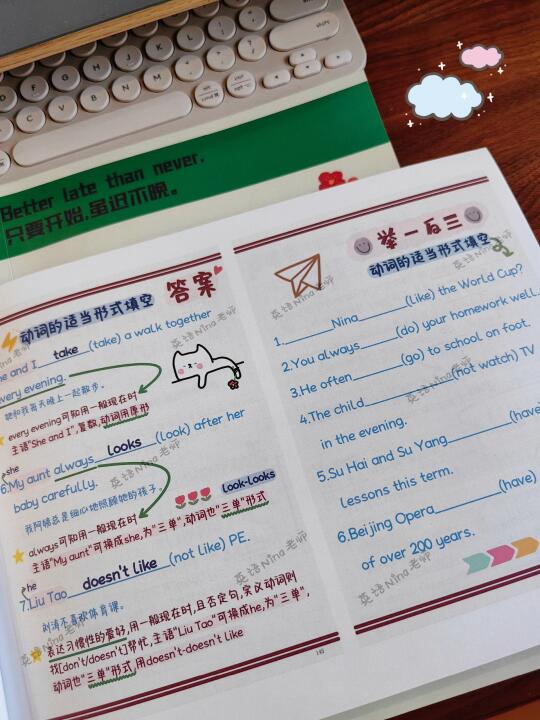 Better late than never.
只要开始,虽迟不晚。
动词的适当形式填空
答案
he and I take (take) a walk together
every evening.
她和我每天晚上一起散步。
every evening可知用一般现在时
主语"She and I",复数,动词用原形
she
6.My aunt always looks (look) after her
baby carefully.
我阿姨总是细心地照顾她的孩子。
Look-Looks
always可知用一般现在时
主语"My aunt"可换成she,为"三单",动词也"三单"形式
he
7.Liu Tao doesn't like (not like) PE.
刘涛不喜欢体育课。
表达习惯性的爱好,用一般现在时,且否定句,实义动词则
找[don't/doesn't]帮忙,主语"Liu Tao"可换成he,为"三单",
动词也"三单"形式,用doesn't-doesn't like
举一反三
动词的适当形式填空
1.______Nina______(like) the World Cup?
2.You always______(do) your homework well.
3.He often______(go) to school on foot.
4.The child______(not watch) TV
in the evening.
5.Su Hai and Su Yang______(have
lessons this term.
6.Beijing Opera______(have)
of over 200 years.
英语Nina老师
英语Nina老师
英语Nina老师
英语Nina老师
英语Nina老师
英语Nina老师
英语Nina老师